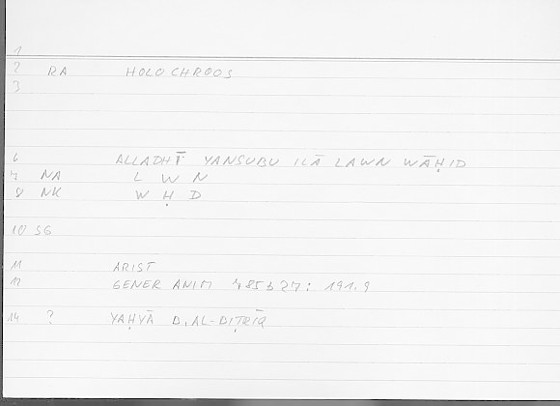 1
2 RA HOLOCHROOS
3
6 ALLADHĪ YANSUBU ILĀ LAWN WĀḤID
7 NA L W N
8 NK W Ḥ D
10 SG
11 ARIST
12 GENER ANIM 785b27: 191.9
14 ? YAḤYĀ B. AL-BIṬRĪQ